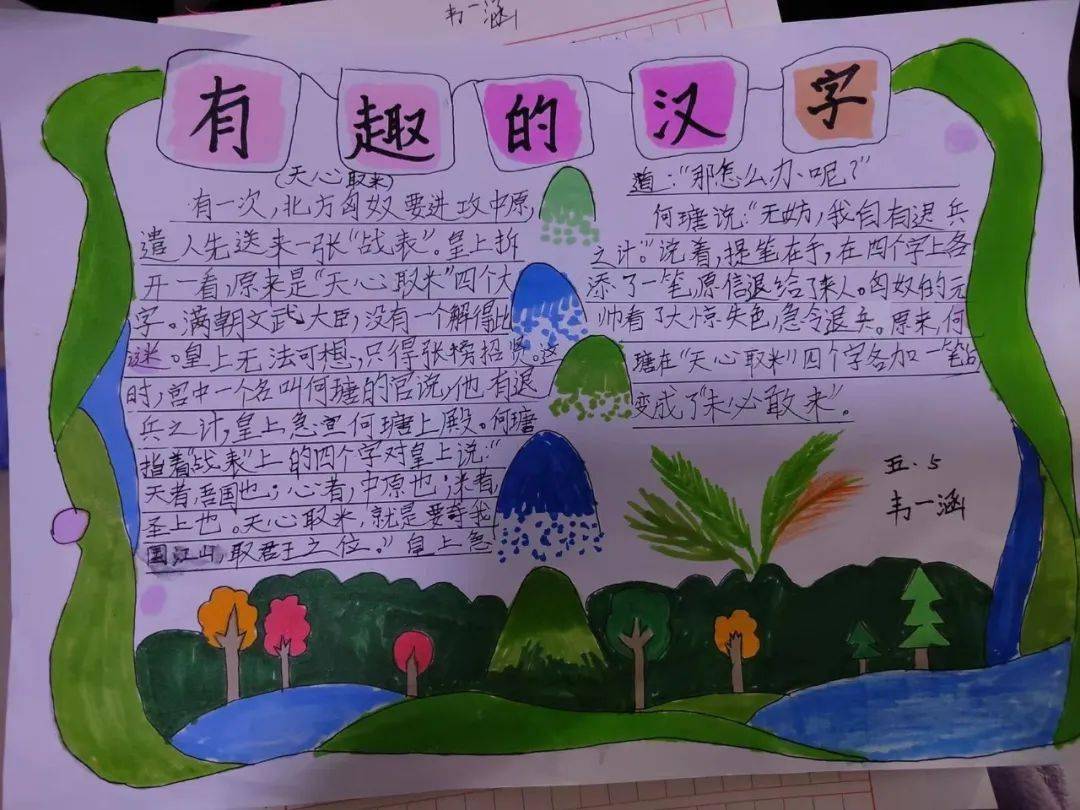 韦一涵
有趣的汉字
(天心取米)
有一次,北方匈奴要进攻中原,
遣人先送来一张“战表”。皇上拆
开一看,原来是“天心取米”四个大
字。满朝文武大臣,没有一个解得此
谜。皇上无法可想,只得张榜招贤。这
时,宫中一个名叫何瑭的官说,他有退
兵之计,皇上急宣何瑭上殿。何瑭
指着“战表”上的四个字对皇上说:“
天者,吾国也;心者,中原也;米者,
圣上也。天心取米,就是要夺我
国江山,取君王之位。”皇上急
道:“那怎么办呢?”
何瑭说:“无妨,我自有退兵
之计。”说着,提笔在手,在四个字上各
添了一笔,原信退给了来人。匈奴的元
帅看了大惊失色,急令退兵。原来,何
瑭在“天心取米”四个字各加一笔,
变成了“未必敢来”。
五.5
韦一涵